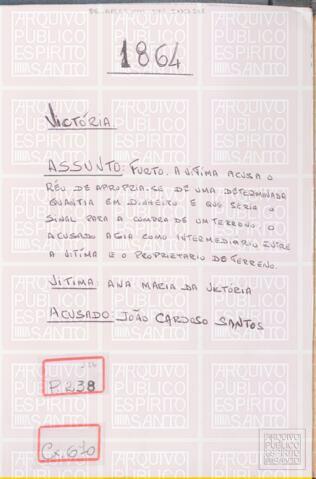 1864
VICTÓRIA
ASSUNTO: FURTO. A VITIMA ACUSA O
RÉU DE APROPRIA-SE DE UMA DETERMINADA
QUANTIA EM DINHEIRO E QUE SERIA O
SINAL PARA A COMPRA DE UM TERRENO. O
ACUSADO AGIA COMO INTERMEDIARIO ENTRE
A VITIMA E O PROPRIETARIO DE TERRENO.
VITIMA: ANA MARIA DA VICTÓRIA
ACUSADO: JOÃO CARDOSO SANTOS
P.238
Cx.670
ARQUIVO
PÚBLICO
ESPÍRITO
SANTO